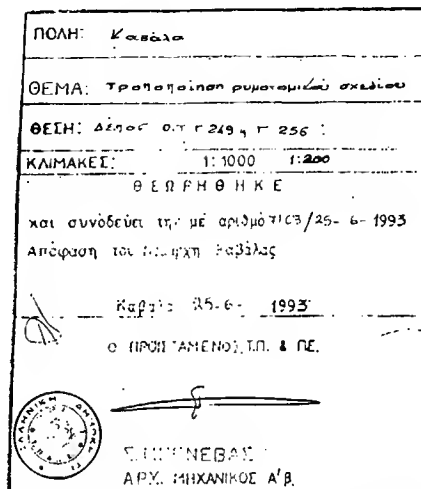 ΠΟΛΗ: Καβάλα
ΘΕΜΑ: Τροποποίηση ρυμοτομικού σχεδίου
ΘΕΣΗ: Δ. Ο.Τ Γ 249, Γ 256
ΚΛΙΜΑΚΕΣ: 1:1000 1:200
ΘΕΩΡΗΘΗΚΕ
και συνοδεύει την με αριθμό /25-6-1993
Απόφαση του Νομάρχη Καβάλας
Καβάλα 25-6-1993
Ο ΠΡΟΪΣΤΑΜΕΝΟΣ Τ.Π. & ΠΕ.
ΕΛΛΗΝΙΚΗ ΔΗΜΟΚΡΑΤΙ
ΑΡΧ. ΜΗΧΑΝΙΚΟΣ Α'β.